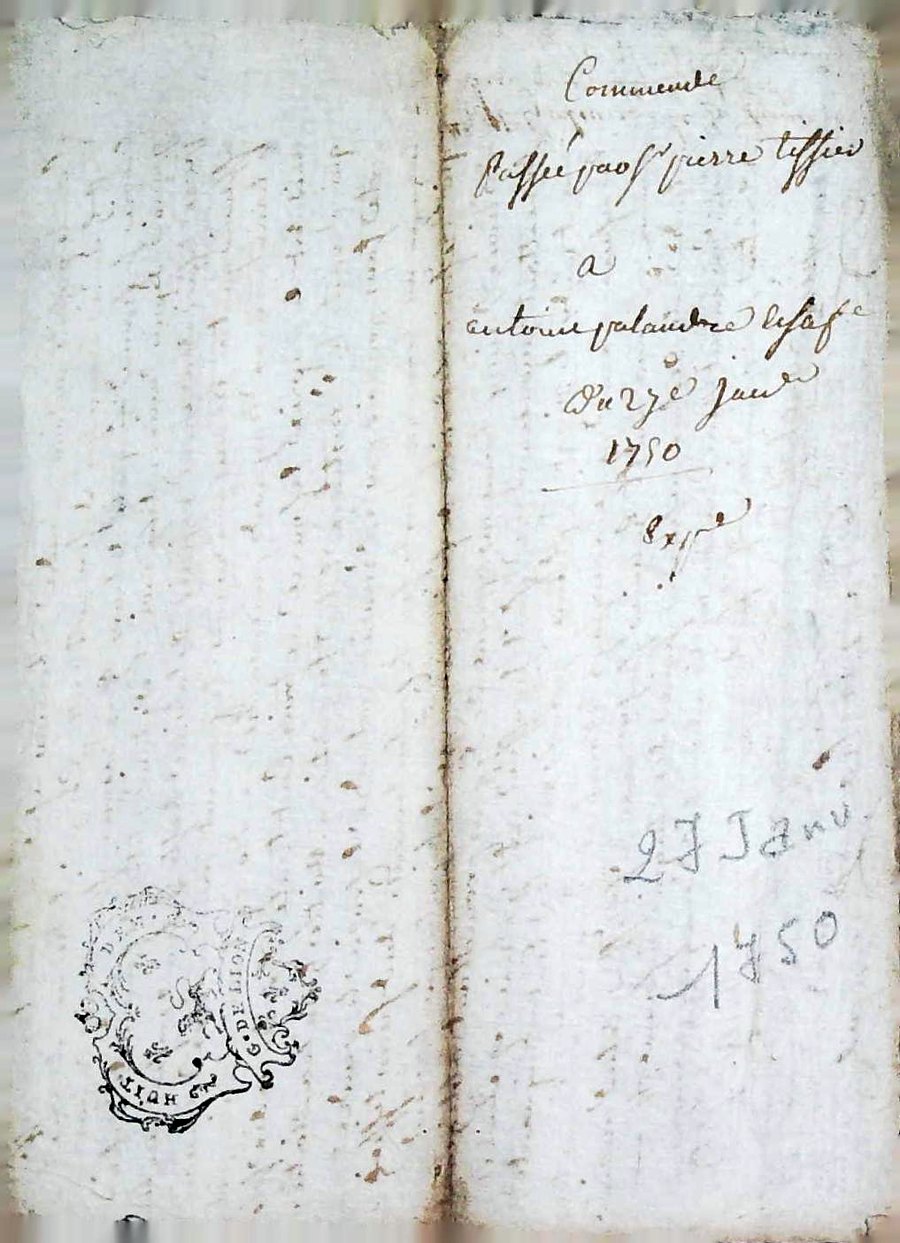 Commende
Passée par Sr pierre tissier
a
antoine palandre & sa fe
Du 27e janer
1750
Expe
27 Janv.
1750
DEN.
G. DE
HUIT